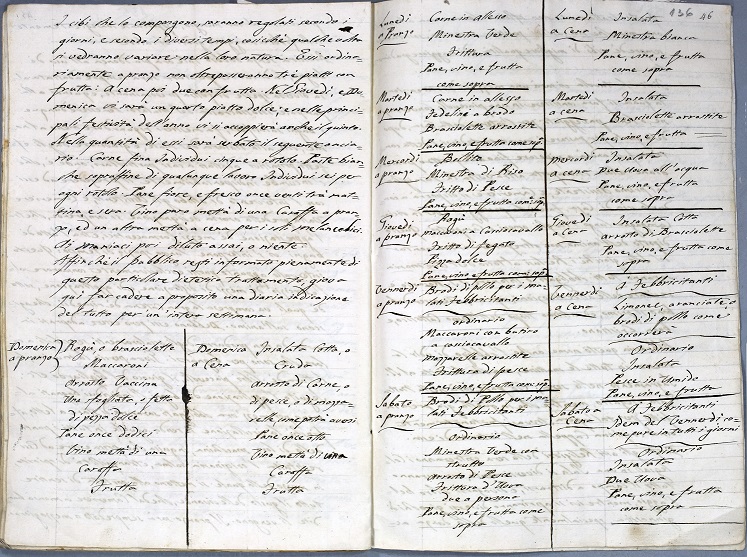 I cibi che lo compongono, saranno regolati secondo i
giorni, e secondo i diversi tempi, cosicchè qualche volta
si vedranno variare nella loro natura. Essi ordina-
riamente a pranzo non oltrepasseranno tre piatti con
frutta: A cena poi due con frutta. Nel Giovedì, e Do-
menica vi sarà un quarto piatto dolce; e nelle princi-
pali festività dell'anno vi si accoppierà anche il quinto.
Nella quantità di essi sarà serbato il seguente
Carne fina Individui cinque a rotolo. Paste bian-
che sopraffine di qualunque lavoro Individui sei per
ogni rotolo. Pane fiore, e fresco once venti tra mat-
tina e sera. Vino puro metà di una Caraffa a pran-
zo, ed un altra metà a cena per i soli melanconici.
Ai maniaci poi diluto assai, o niente.
Affinchè il Pubblico resti informato pienamente di
questo particolare dietetico trattamento, giova
qui far cadere a proposito una diaria indicazione
del tutto per un' intera settimana.
Domenica a pranzo
Ragù, o brasciolette
Maccaroni
Arrosto Vaccina
Una sfogliata, o fetta
di pizza dolce
Pane once dodici
Vino metà di una
Caraffa
Frutta
Domenica a Cena
Insalata Cotta, o
Cruda
arrosto di Carne, o
di pesce, o di mozza-
relle, come potrà aversi
Pane once otto
Vino metà di una
Caraffa
Frutta
136 46
Lunedì a Pranzo
Carne in allesso
Minestra Verde
Frittura
Pane, vino, e frutta
come sopra
Lunedì a Cena
Insalata
Minestra bianca
Pane, vino, e frutta
come sopra
Martedì a pranzo
Carne in allesso
Fedeline a brodo
Brasciolette arrostite
Pane, vino, e frutta come sop.
Martedì a cena
Insalata
Brasciolette arrostite
Pane, vino, e frutta
Mercordì a pranzo
Bollito
Minestra di Riso
Fritto di Pesce
Pane, vino, e frutta come sop.
mercordì a cena
Insalata
Due Uova all'acqua
Pane, vino, e frutta
come sopra
Giovedì a pranzo
Ragù
maccaroni a Caciocavallo
Fritto di fegato
Pizza dolce
Pane, vino e frutta come sop.
Giovedì a Cena
Insalata Cotta
arrosto di Brasciolette
Pane, vino, e frutta come
sopra
Vennerdì a pranzo
Brodi di pollo per i ma-
lati Febbricitanti
ordinario
Maccaroni con butiro
e caciocavallo
Mozzarelle arrostite
Frittura di pesce
Pane, vino, e frutta come sop.
Vennerdì a Cena
A Febbricitanti
Limonee, aranciate o
brodi di pollo come
occorrerà
Ordinario
Insalata
Pesce in Umido
Pane, vino, e frutta
Sabato a pranzo
Brodi di Pollo per i ma-
lati Febbricitanti
Ordinario
Minestra Verde con
strutto
arrosto di Pesce
Frittura d'Uova
due a persona
Pane, vino, e frutta come
sopra
Sabato a Cena
A Febbricitanti
Idem del Vennerdì co-
me pure in tutti i giorni
Ordinario
Insalata
Due Uova
Pane, vino, e frutta
come sopra